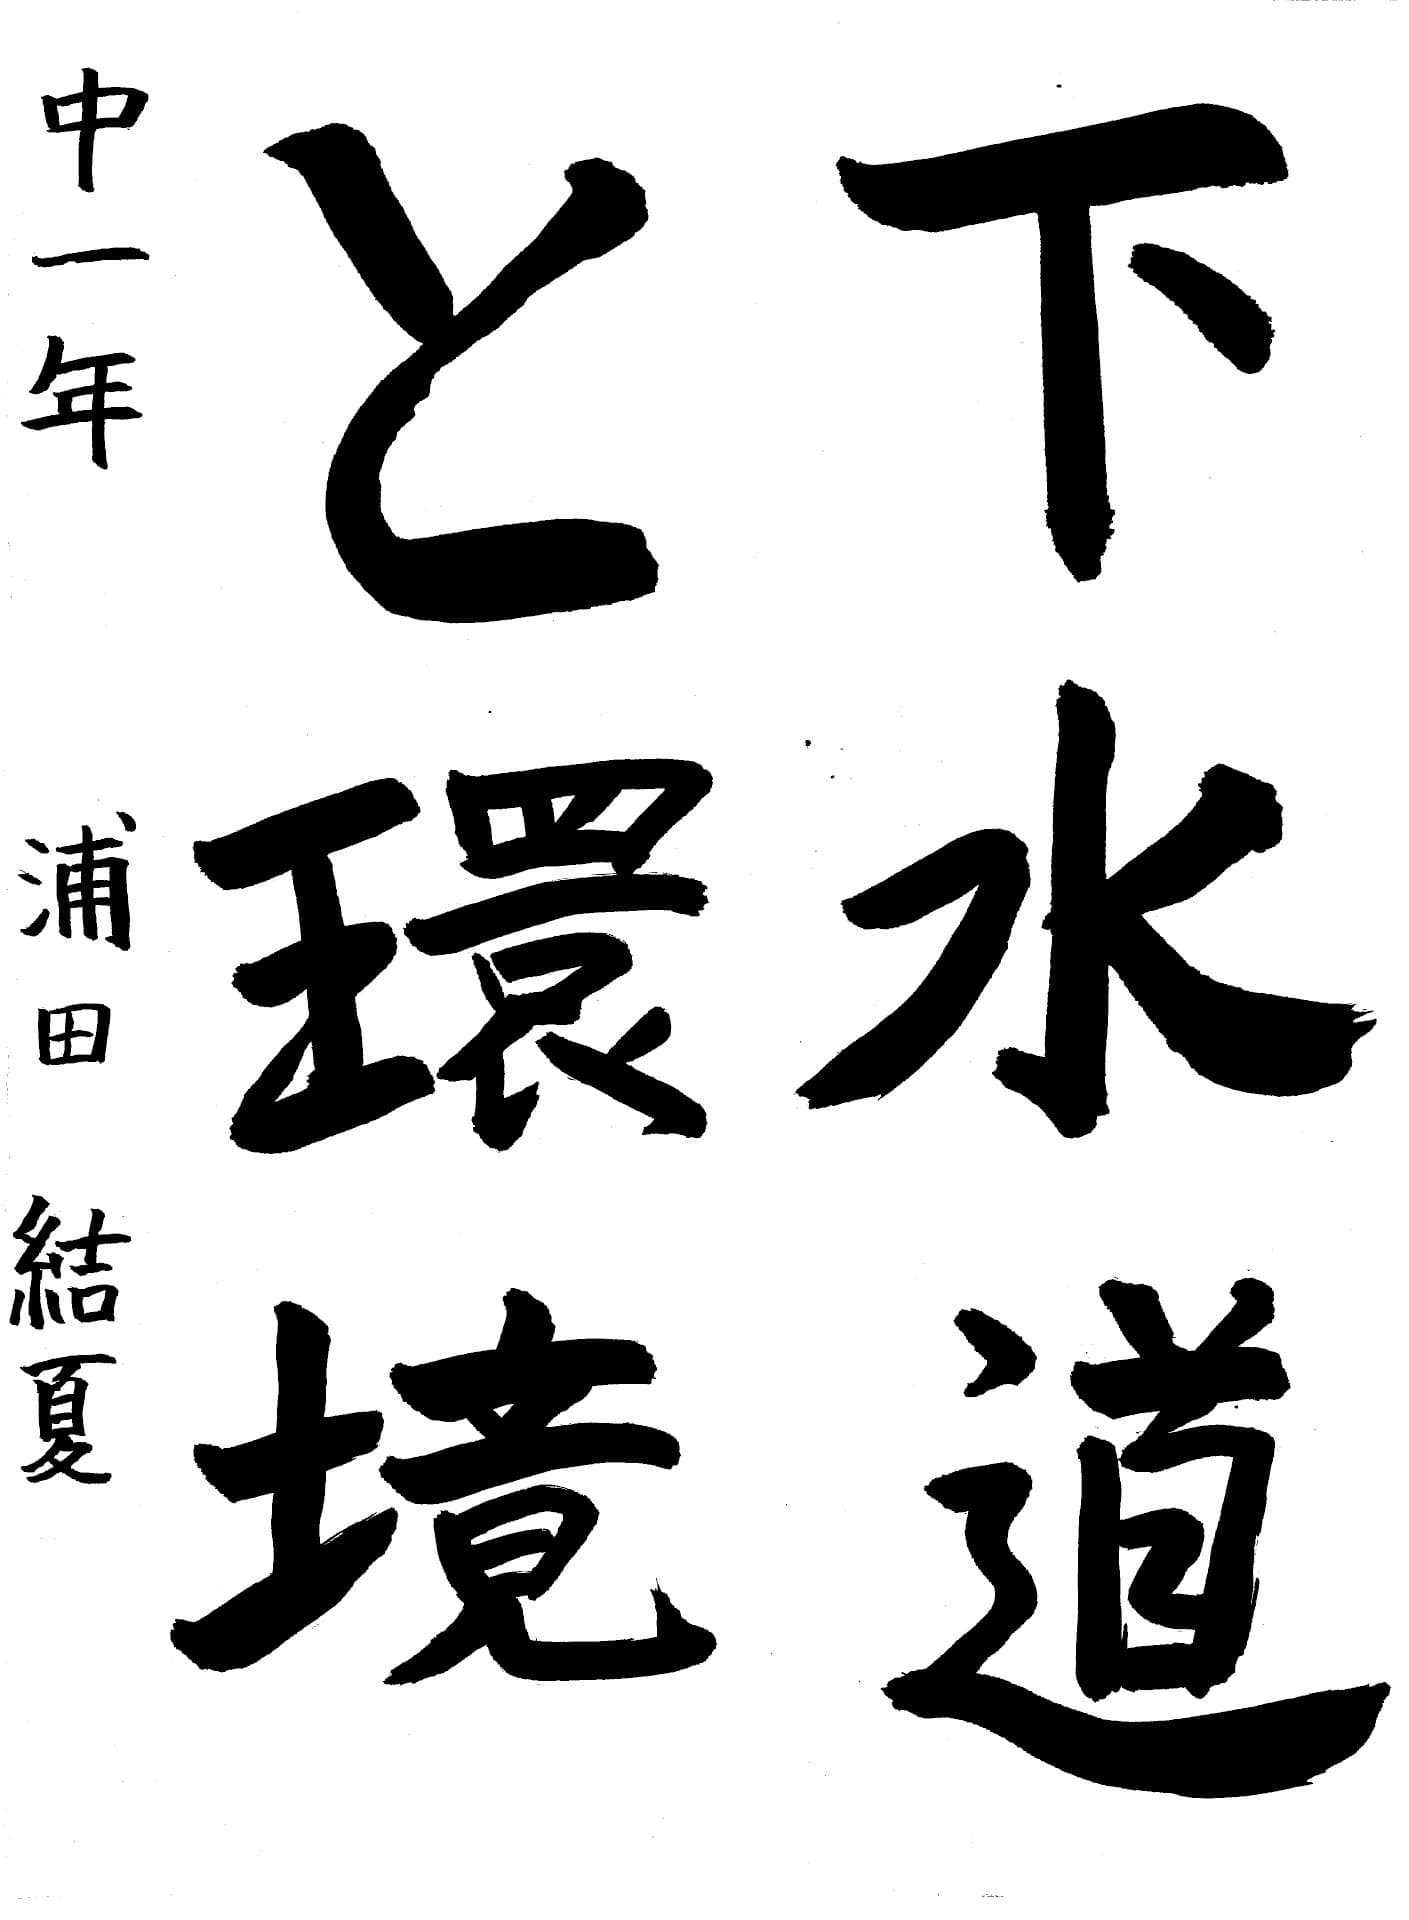 下水道
と環境
中一年 浦田 結夏